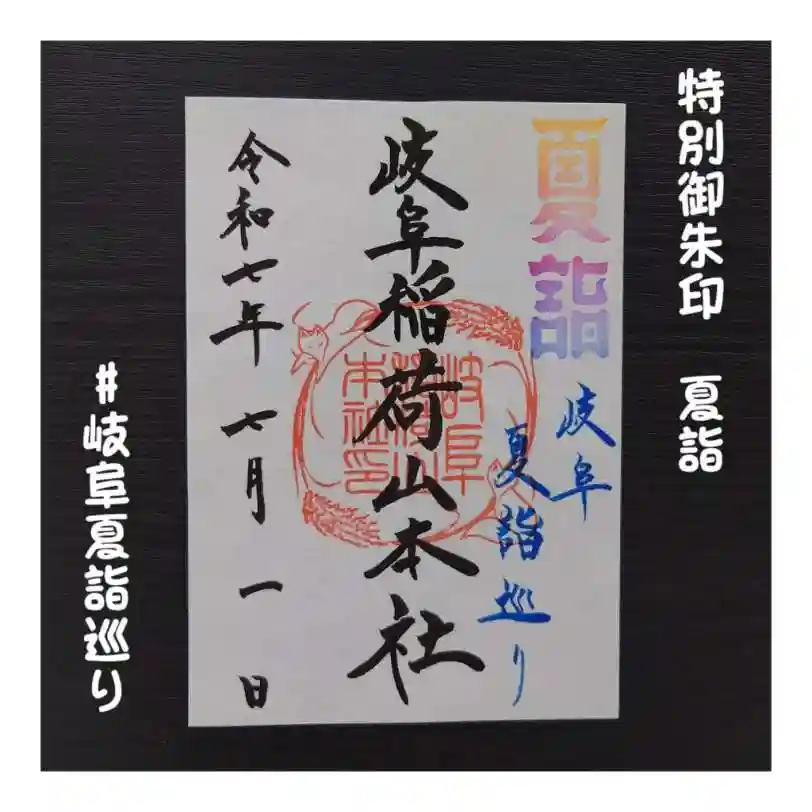 特別御朱印 夏詣
夏詣
岐阜
夏詣巡り
岐阜稲荷山本社
岐阜
稲荷山
本社印
令和七年 七月 一日
#岐阜夏詣巡り